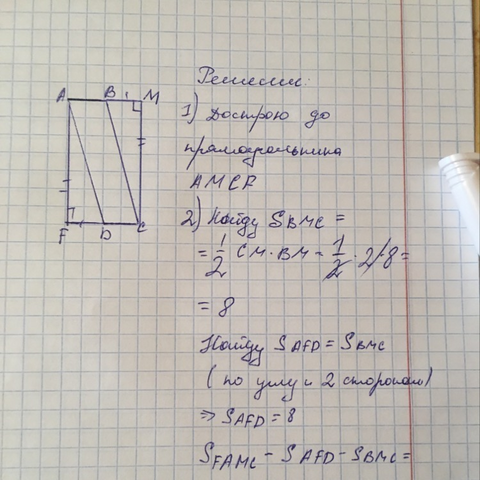 A B M
Решение:
1) Дострою до
прямоугольника
AMCF
2) Найду SBMC =
= 1/2 CM · BM = 1/2 · 2 · 8 =
= 8
Найду SAFD = SBMC
(по углу и 2 сторонам)
⇒ SAFD = 8
SFAMC - SAFD - SBMC =
F D C